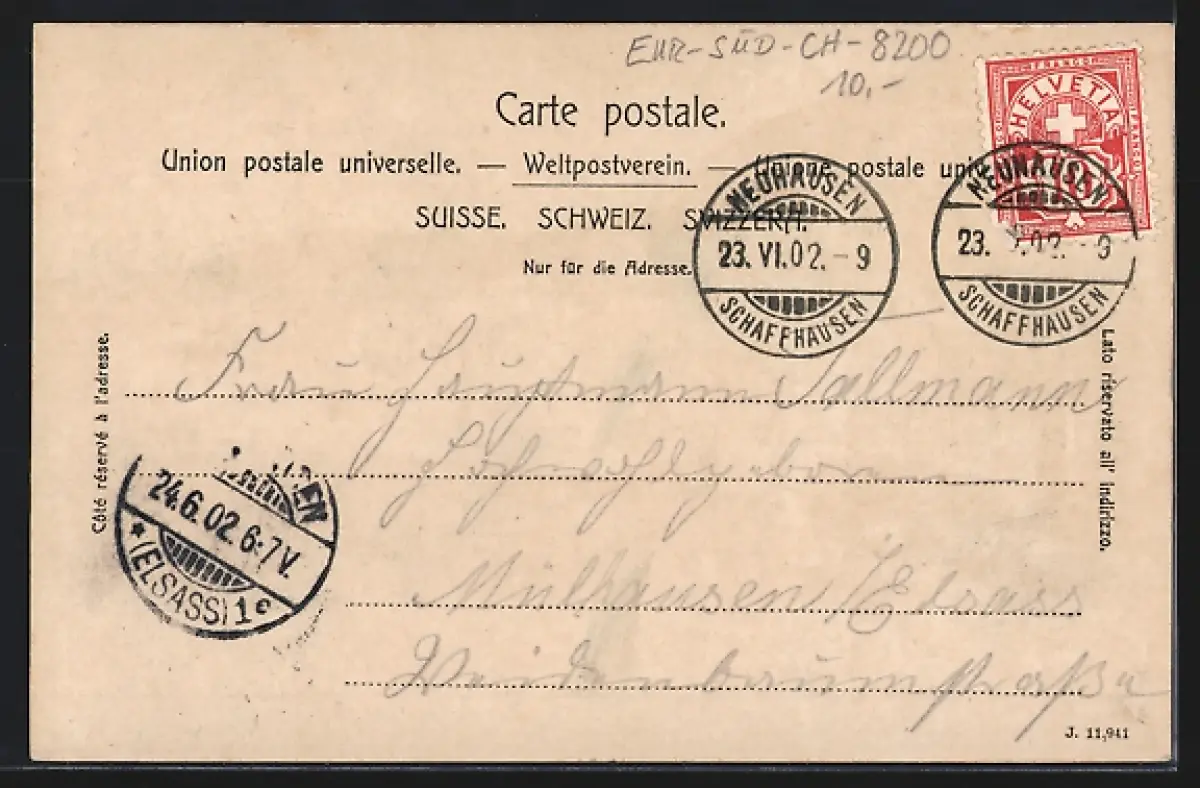 EUR-SÜD-CH-8200
10.-
Carte postale.
Union postale universelle. — Weltpostverein. — Unione postale univ
SUISSE. SCHWEIZ. SVIZZERA.
Nur für die Adresse.
FRANCO
HELVETIA
NEUHAUSEN
23. VI. 02. - 9
SCHAFFHAUSEN
NEUHAUSEN
23. 02. - 9
SCHAFFHAUSEN
Côté réservé à l'adresse.
Lato riservato all' indirizzo.
Frau Hauptmann Sallmann
Hochwohlgeboren
24.6.02. 6-7V.
*(ELSASS) 1c
Mülhausen i/Elsass
Weidenbaumstraße
J. 11,941